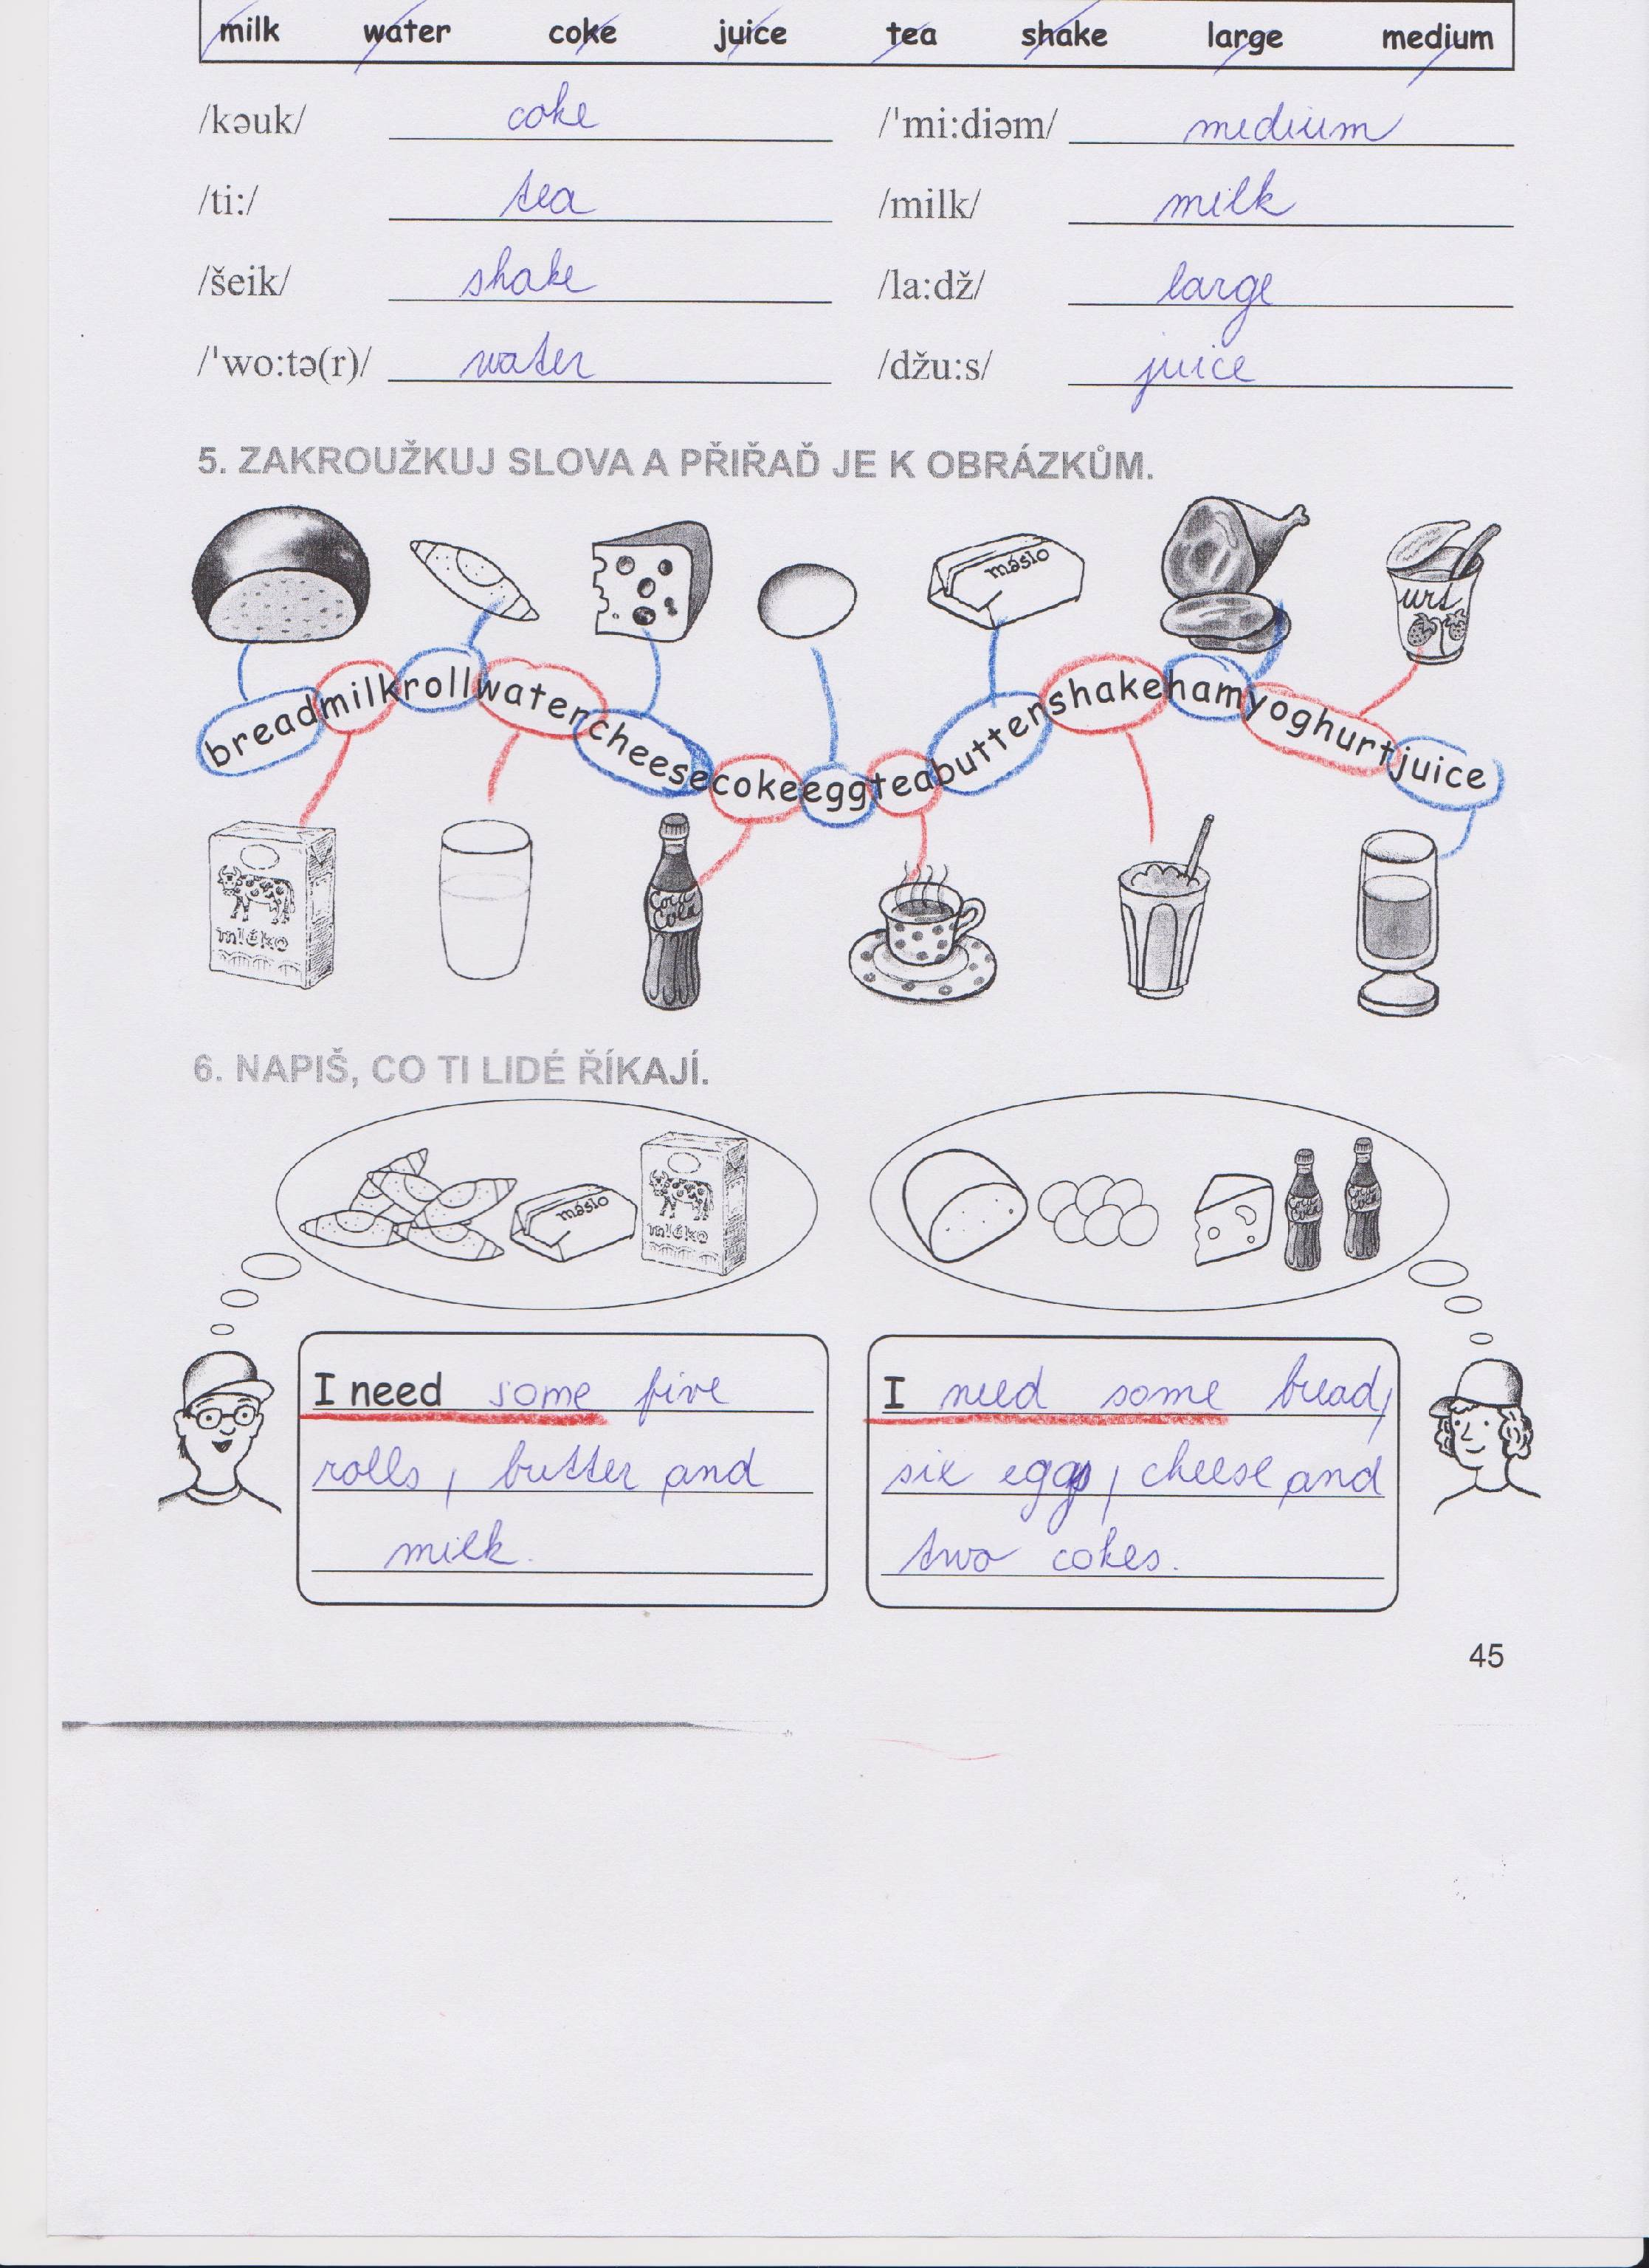 milk water coke juice tea shake large medium
/kəuk/ coke /'mi:diəm/ medium
/ti:/ tea /milk/ milk
/šeik/ shake /la:dž/ large
/'wo:tə(r)/ water /džu:s/ juice
5. ZAKROUŽKUJ SLOVA A PŘIŘAĎ JE K OBRÁZKŮM.
máslo
urt
breadmilkrollwatercheesecokeeggteabuttershakehamyoghurtjuice
mléko
Coca Cola
6. NAPIŠ, CO TI LIDÉ ŘÍKAJÍ.
máslo
mléko
Coca Cola
Coca Cola
I need some five
rolls, butter and
milk.
I need some bread,
six eggs, cheese and
two cokes.
45